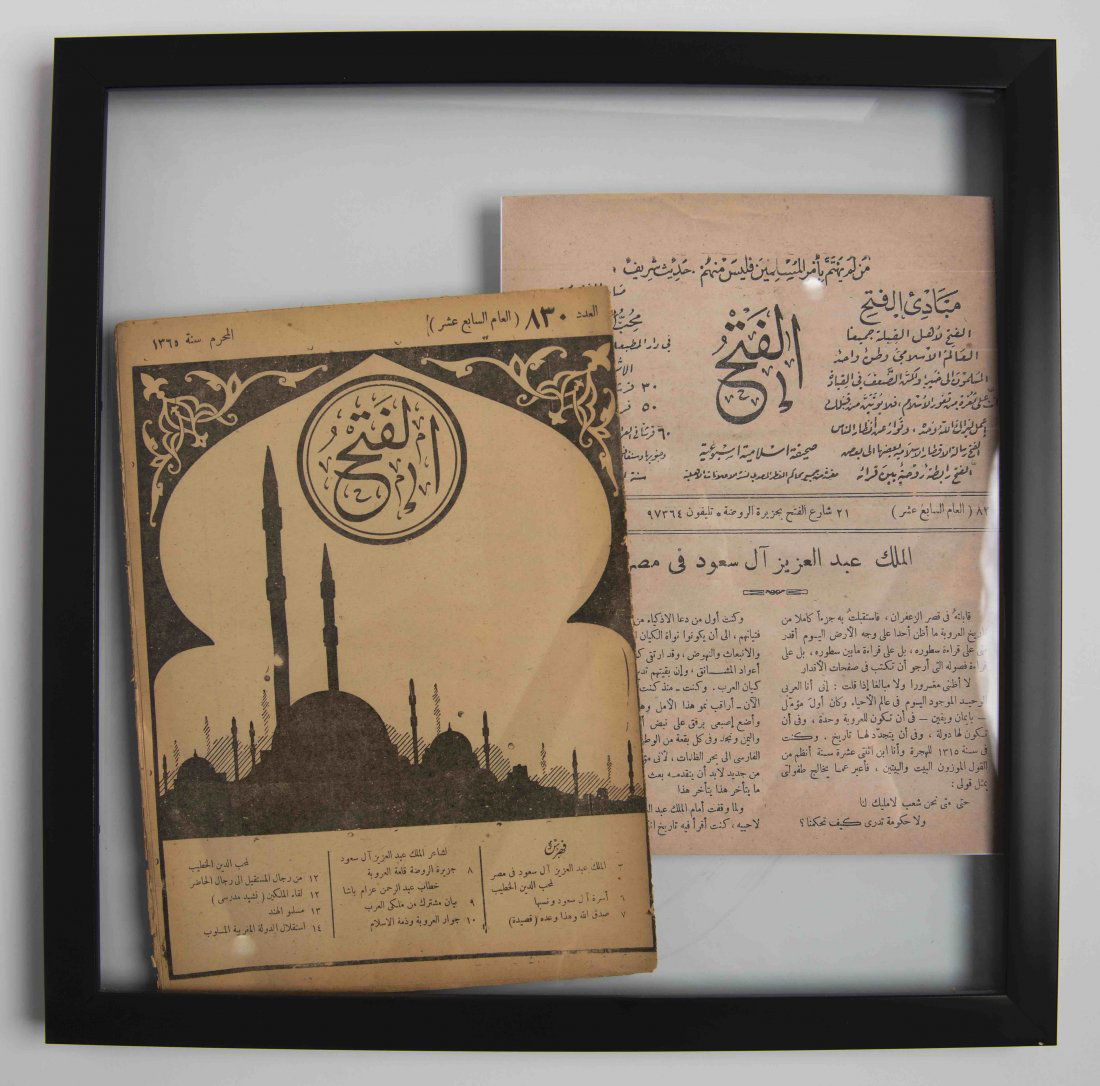 العدد ٨٣٠ ( العام السابع عشر )
المحرم سنة ١٣٦٥
الفتح
فهرس
الملك عبد العزيز آل سعود في مصر
لمحب الدين الخطيب
٦ أسرة آل سعود ونسبها
٧ صدق الله وهذا وعده (قصيدة)
لشاعر الملك عبد العزيز آل سعود
٨ جزيرة الروضة قلعة العروبة
خطاب عبد الرحمن عزام باشا
٩ بيان مشترك من ملكي العرب
١٠ جوار العروبة وذمة الاسلام
لمحب الدين الخطيب
١٢ من رجال المستقبل الى رجال الحاضر
١٢ لقاء الملكين ( نشيد مدرسي )
١٣ مسلمو الهند
١٤ استقلال الدولة المغربية المسلوب
من لم يهتم بأمر المسلمين فليس منهم . حديث شريف
مبادئ الفتح
الفتح لأهل القبلة جميعا
العالم الاسلامي وطن واحد
المسلمون الى خير ولكن الضعف في القيادة
على ثغرة من ثغور الاسلام ، فلا يؤتين من قبلك
الفتح رسالة الأقطار الاسلامية بعضها الى بعض
الفتح رابطة روحية بين قرائه
الفتح
صحيفة اسلامية اسبوعية
في دار المطبعة
٣٠
٥٠
٦٠
سنة
( العام السابع عشر ) ٢١ شارع الفتح بجزيرة الروضة * تليفون ٩٧٣٦٤
الملك عبد العزيز آل سعود في مصر
قابلته في قصر الزعفران ، فاستقبلت به جزءاً كاملا من
تاريخ العروبة ما أظن أحدا على وجه الأرض اليوم أقدر
مني على قراءة سطوره ، بل على قراءة مابين سطوره ، بل على
قراءة فصوله التي أرجو أن تكتب في صفحات الأقدار
لا أظنني مغرورا ولا مبالغا إذا قلت : إني أنا العربي
الوحيد الموجود اليوم في عالم الأحياء وكان أول مؤمل
ـ بايمان ويقين ـ في أن تكون للعروبة وحدة ، وفي أن
تكون لها دولة ، وفي أن يتجدد لها تاريخ . وكنت
في سنة ١٣١٥ للهجرة وأنا ابن اثنتي عشرة سنة أنظم من
القول الموزون البيت والبيتين ، فأعبر عما يخالج طفولتي
بمثل قولي :
حتى متى نحن شعب لامليك لنا
ولا حكومة تدري كيف تحكمنا ؟
وكنت أول من دعا الاذكياء من
فتيانهم ، الى أن يكونوا نواة الكيان
والانبعاث والنهوض ، وقد ارتقى
أعواد المشانق ، وإن بقيتهم
كيان العرب . وكنت ـ منذ كنت
الآن ـ أراقب نمو هذا الأمل
وأضع إصبعي برفق على نبض
واليمن ونجد وفي كل بقعة من الوطن
الفارسي الى بحر الظلمات ، لأني
من جديد لابد أن يتقدمه بعث
ما يتأخر هذا يتأخر هذا
ولما وقفت أمام الملك عبد
لاحييه ، كنت أقرأ فيه تاريخ